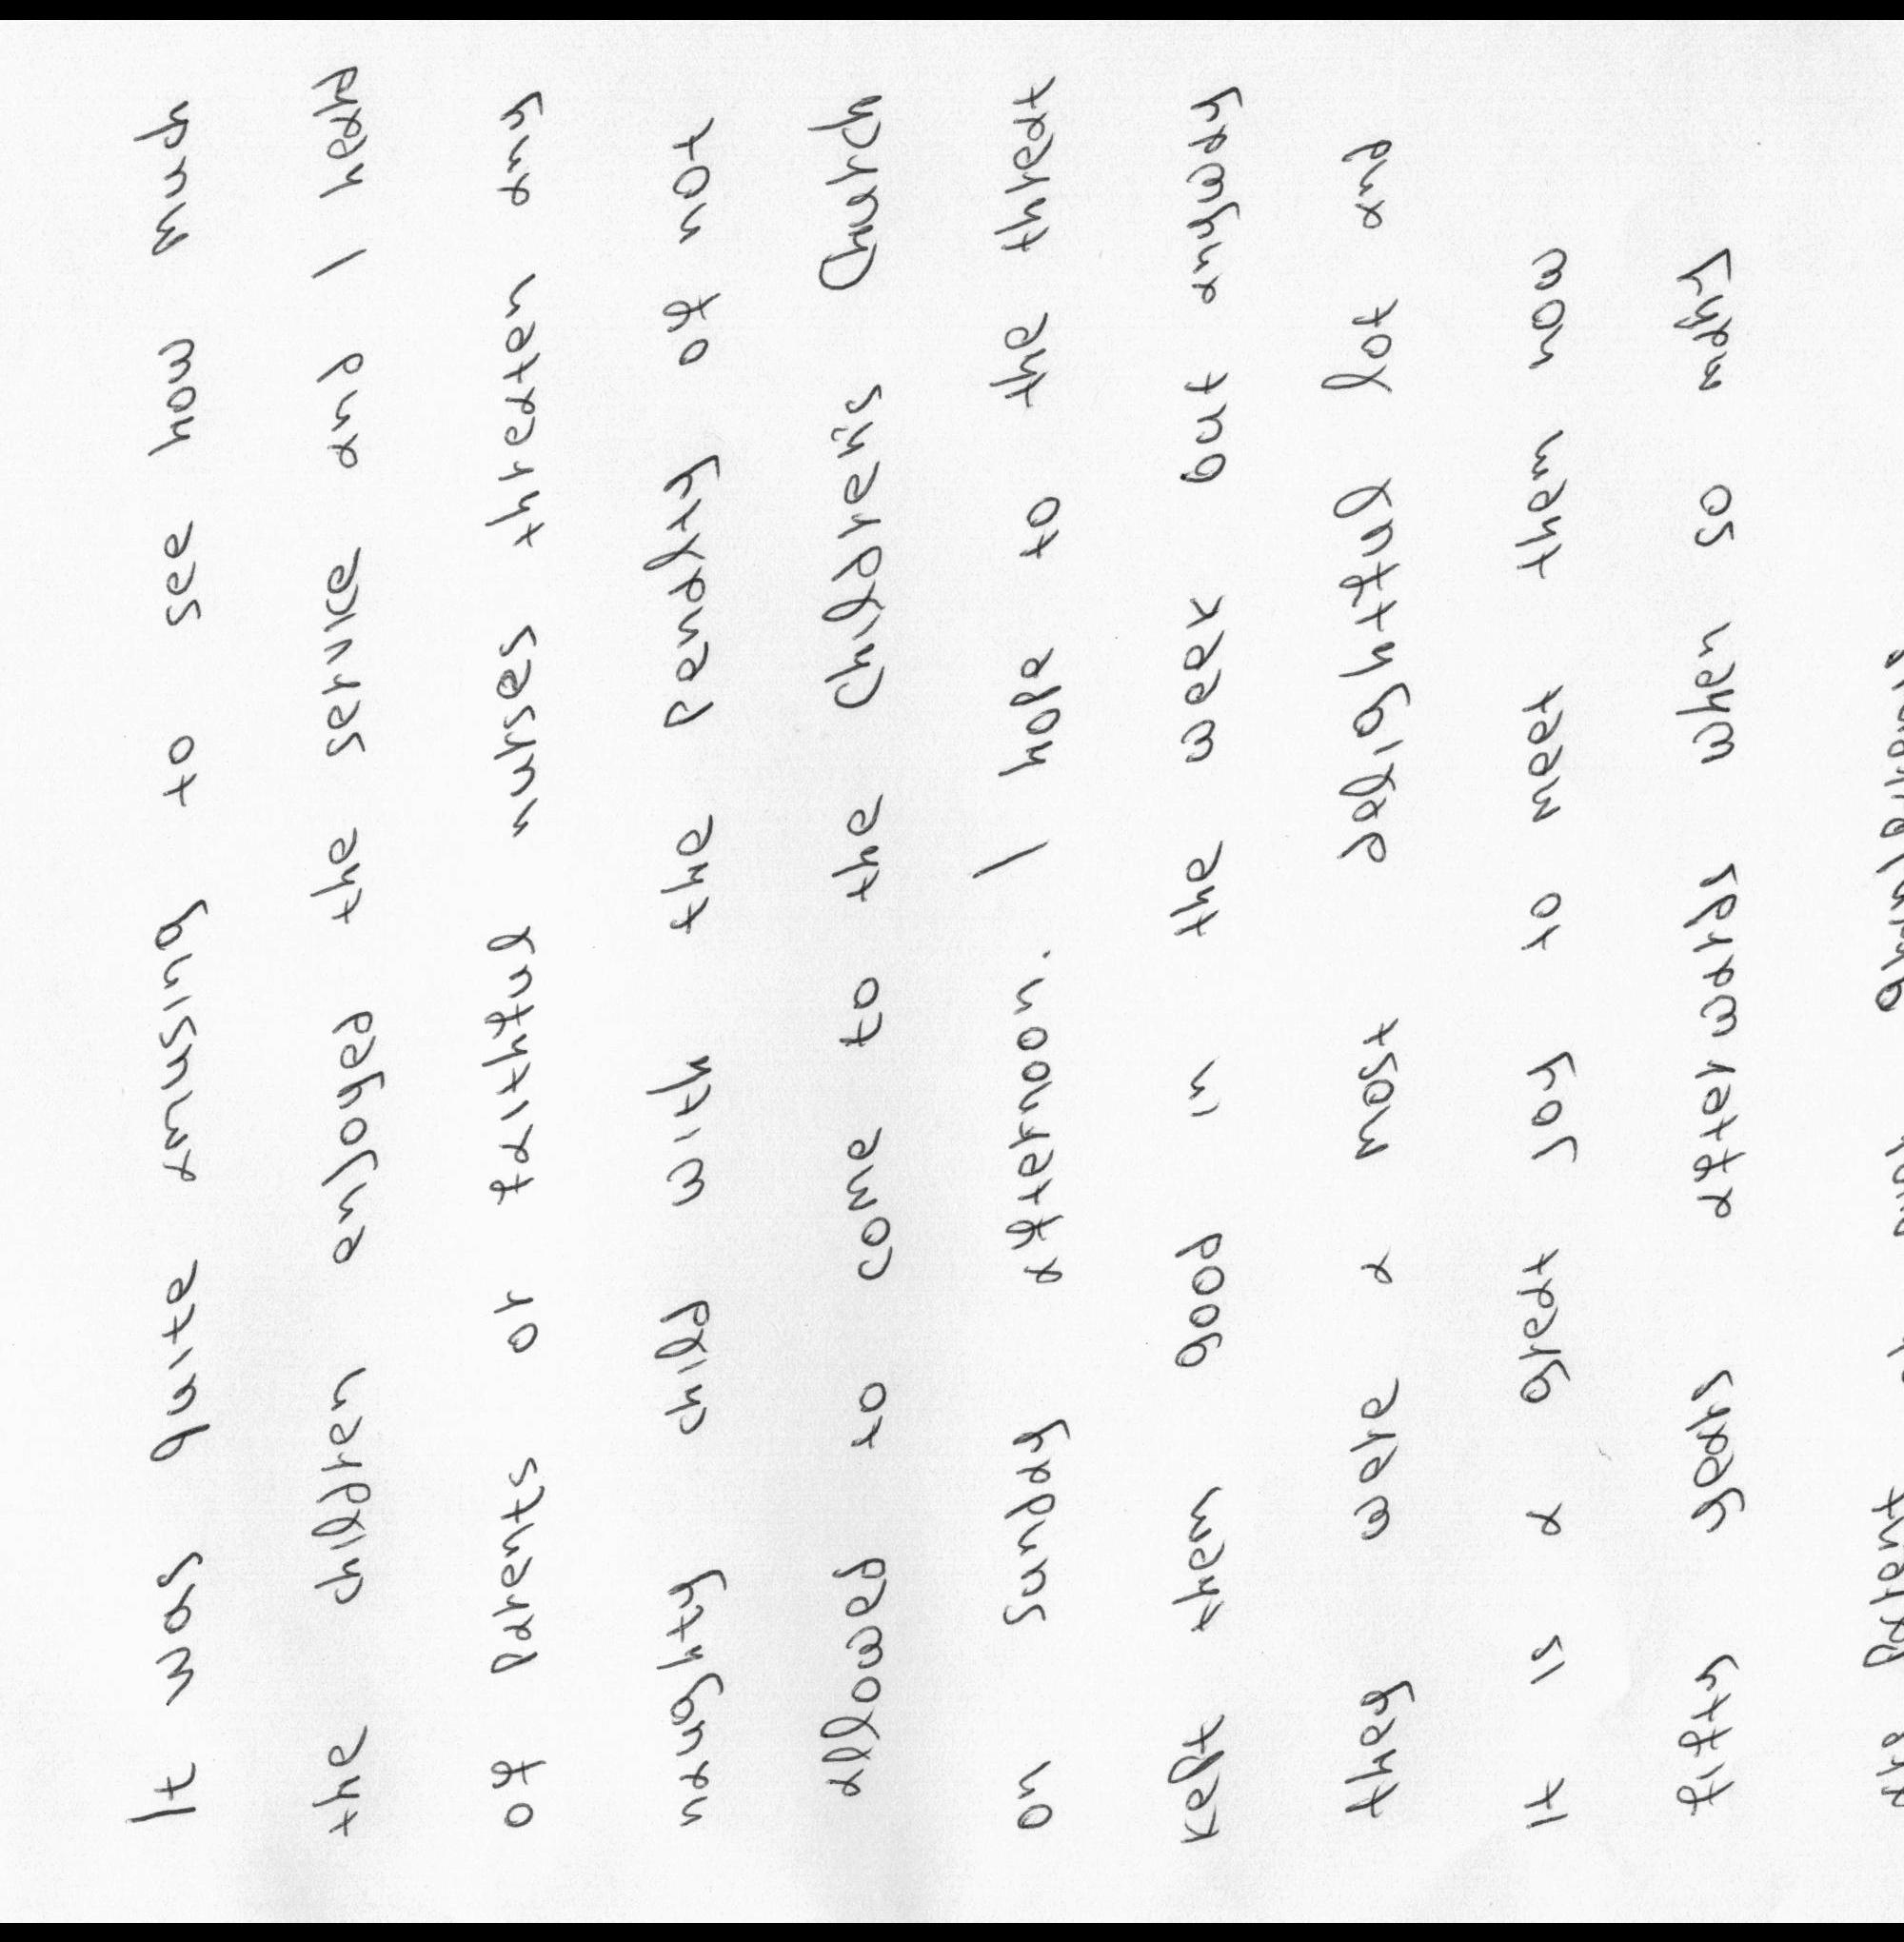 It was quite amusing to see how much
the children enjoyed the service and I heard
of parents or faithful nurses threaten any
naughty child with the penalty of not
allowed to come to the Children's Church
on Sunday afternoon. I hope to the threat
kept them good in the week but anyway
they were a most delightful lot and
It is a great joy to meet them now
fifty years afterwards when so many
parent